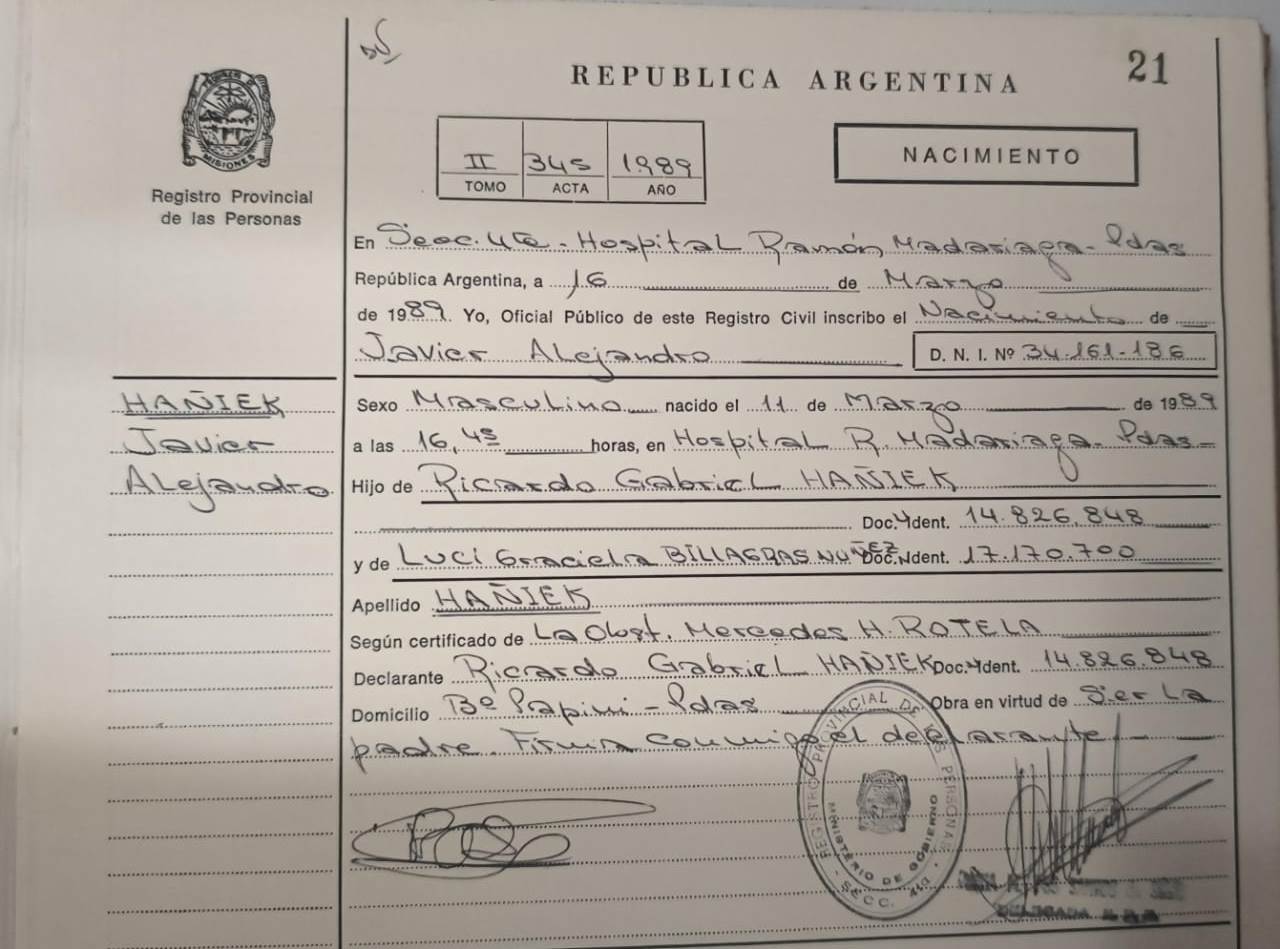 21
REPUBLICA ARGENTINA
MISIONES
Registro Provincial
de las Personas
II 345 1.989
TOMO ACTA AÑO
NACIMIENTO
En Secc. 4ta - Hospital Ramón Madariaga - Pdas
República Argentina, a 16 de Marzo
de 1989. Yo, Oficial Público de este Registro Civil inscribo el Nacimiento de
Javier Alejandro D. N. I. Nº 34.161-186
HAÑIEK
Javier
Alejandro
Sexo Masculino nacido el 11 de Marzo de 1989
a las 16,45 horas, en Hospital R. Madariaga - Pdas -
Hijo de Ricardo Gabriel HAÑIEK
Doc. Ident. 14.826.848
y de Luci Graciela BILLAGRAS NUÑEZ Doc. Ident. 17.170.700
Apellido HAÑIEK
Según certificado de La Obst. Mercedes H. ROTELA
Declarante Ricardo Gabriel HAÑIEK Doc. Ident. 14.826.848
Domicilio Bº Papini - Pdas Obra en virtud de Ser La
padre. Firma conmigo el declarante
REGISTRO PROVINCIAL DE LAS PERSONAS
MINISTERIO DE GOBIERNO
SECC. 4ta
DELEGADA